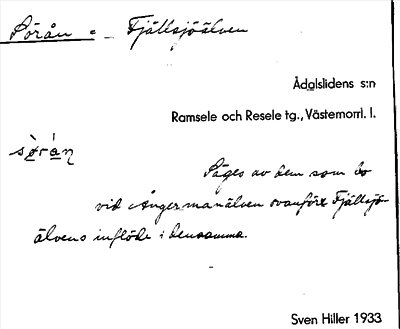 Sörån = Fjällsjöälven
Ådalslidens s:n
Ramsele och Resele tg., Västernorrl. l.
sǿrán
Säges av dem som bo
vid Ångermanälven ovanför Fjällsjö-
älvens inflöde i densamma.
Sven Hiller 1933